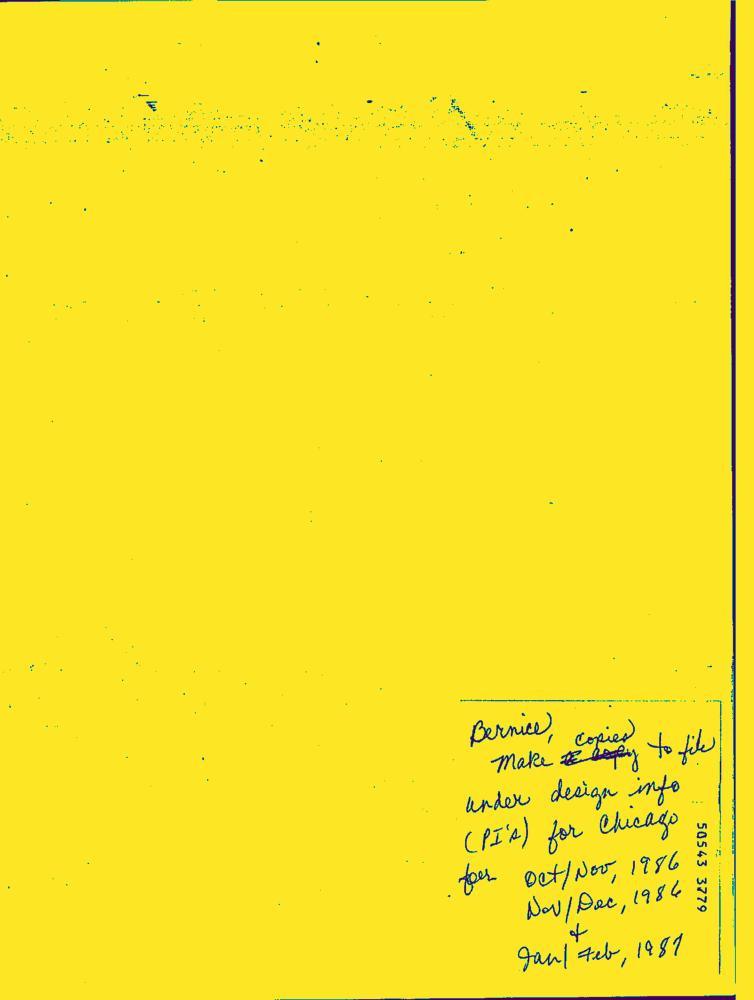 Bernice,
copies
Make a copy to file
under design info
(PI's) for Chicago
for Oct/Nov, 1986
Nov/Dec, 1986
+
Jan/Feb, 1987
50543 3779